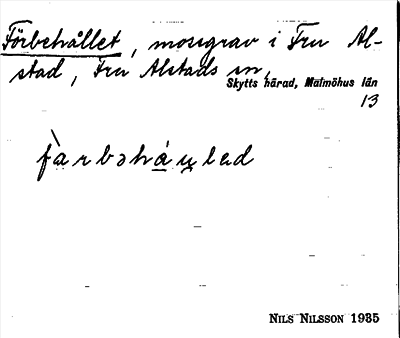 Förbehållet, mossgrav i Fru Al-
stad, Fru Alstads sn,
Skytts härad, Malmöhus län
13
NILS NILSSON 1935